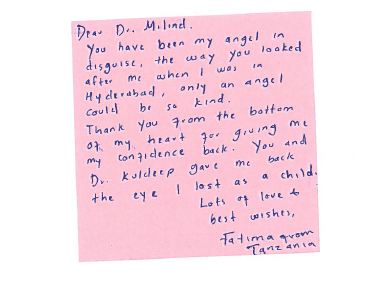 Dear Dr. Milind.
You have been my angel in
disguise, the way you looked
after me when I was in
Hyderabad, only an angel
could be so kind.
Thank you from the bottom
of my heart for giving me
my confidence back. You and
Dr. Kuldeep gave me back
the eye I lost as a child.
Lots of love &
best wishes,
Fatima from
Tanzania